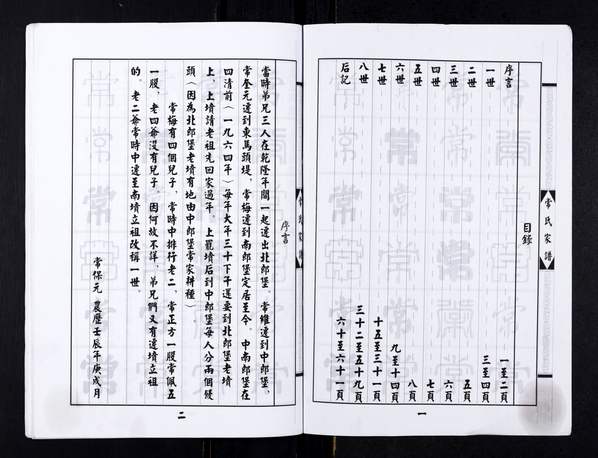 常氏家譜
目錄
序言 一至二頁
一世 三至四頁
二世 五頁
三世 六頁
四世 七頁
五世 八頁
六世 九至十四頁
七世 十五至三十一頁
八世 三十二至五十九頁
后記 六十至六十一頁
一
序言
當時弟兄三人在乾隆年間一起遷出北郎堡。常維遷到中郎堡，
常奎元遷到東馬頭堤。常梅遷到南郎堡定居至今。中南郎堡在
四清前（一九六四年）每年大年三十下午還要到北郎堡老墳
上，上墳請老祖先回家過年。上罷墳后到中郎堡每人分兩個饅
頭（因為北郎堡老墳有地由中郎堡常家耕種）
常梅有四個兒子。常時中排行老二。常正方一股常佩五
一股，老四爺沒有兒子。因何故不詳，弟兄們又有遷墳立祖
的。老二爺常時中遷至南墳立祖改稱一世。
常保元 農歷壬辰年庚戌月
二